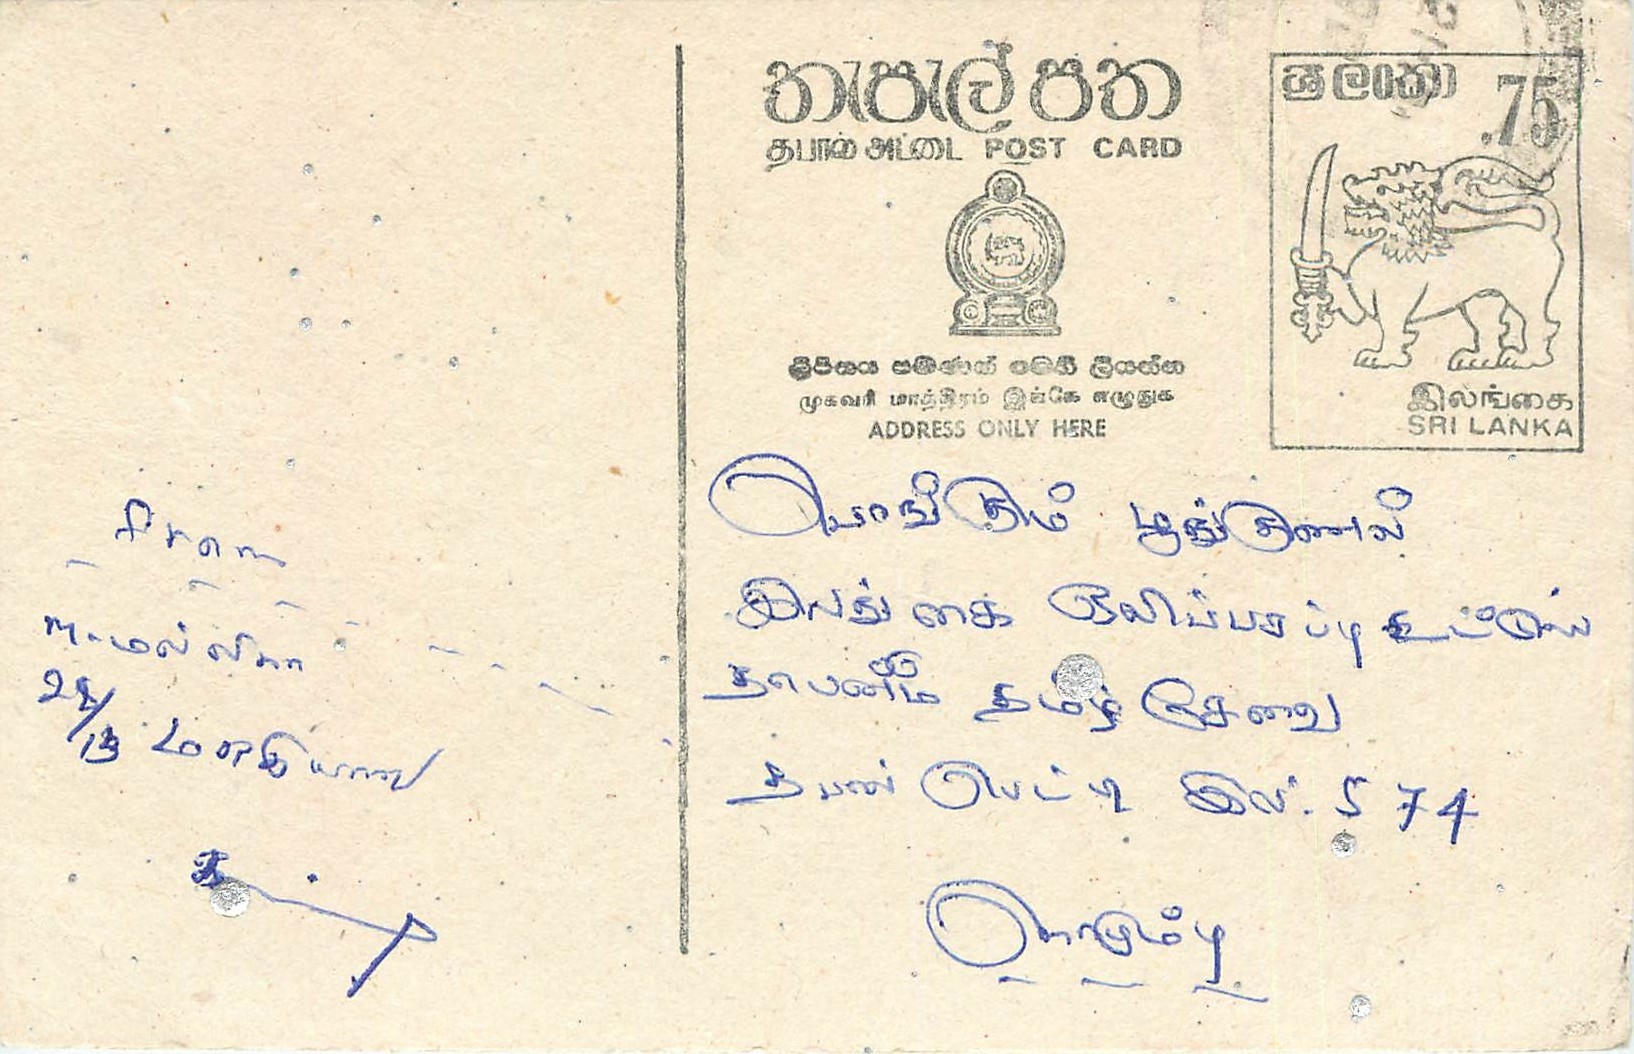 තැපැල් පත
தபால் அட்டை POST CARD
ශ්‍රී ලංකා .75
இலங்கை
SRI LANKA
ලිපිනය පමණක් මෙහි ලියන්න
முகவரி மாத்திரம் இங்கே எழுதுக
ADDRESS ONLY HERE
பொங்கும் பூங்குணல்
இலங்கை ஒலிபரப்பு கூட்டு
தமிழ் சேவை
தபால் பெட்டி இல. 574
கொழும்பு
From
M. மல்லிகா